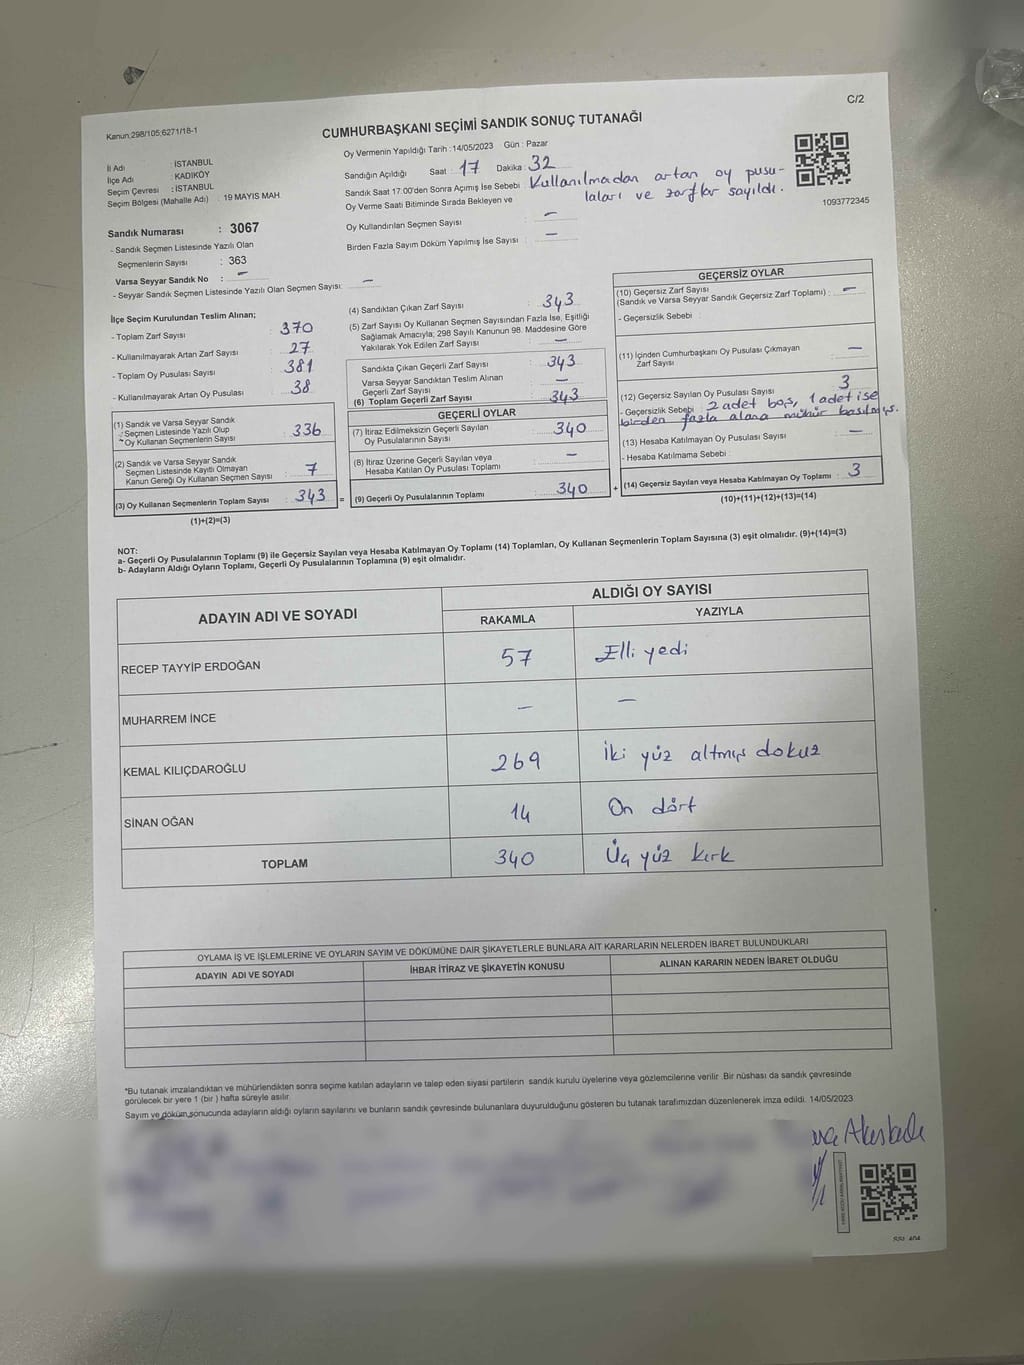 C/2
Kanun:298/105;6271/18-1
CUMHURBAŞKANI SEÇİMİ SANDIK SONUÇ TUTANAĞI
İl Adı : İSTANBUL
İlçe Adı : KADIKÖY
Seçim Çevresi : İSTANBUL
Seçim Bölgesi (Mahalle Adı) : 19 MAYIS MAH.
Oy Vermenin Yapıldığı Tarih : 14/05/2023 Gün : Pazar
Sandığın Açıldığı Saat : 17 Dakika : 32
Sandık Saat 17:00'den Sonra Açılmış İse Sebebi : Kullanılmadan artan oy pusu-
laları ve zarflar sayıldı.
Oy Verme Saati Bitiminde Sırada Bekleyen ve
Oy Kullandırılan Seçmen Sayısı : –
Birden Fazla Sayım Döküm Yapılmış İse Sayısı : –
1093772345
Sandık Numarası : 3067
- Sandık Seçmen Listesinde Yazılı Olan
Seçmenlerin Sayısı : 363
Varsa Seyyar Sandık No : –
- Seyyar Sandık Seçmen Listesinde Yazılı Olan Seçmen Sayısı: –
İlçe Seçim Kurulundan Teslim Alınan;
- Toplam Zarf Sayısı : 370
- Kullanılmayarak Artan Zarf Sayısı : 27
- Toplam Oy Pusulası Sayısı : 381
- Kullanılmayarak Artan Oy Pusulası : 38
(1) Sandık ve Varsa Seyyar Sandık
Seçmen Listesinde Yazılı Olup
Oy Kullanan Seçmenlerin Sayısı : 336
(2) Sandık ve Varsa Seyyar Sandık
Seçmen Listesinde Kayıtlı Olmayan
Kanun Gereği Oy Kullanan Seçmen Sayısı : 7
(3) Oy Kullanan Seçmenlerin Toplam Sayısı : 343 =
(1)+(2)=(3)
(4) Sandıktan Çıkan Zarf Sayısı : 343
(5) Zarf Sayısı Oy Kullanan Seçmen Sayısından Fazla İse, Eşitliği
Sağlamak Amacıyla; 298 Sayılı Kanunun 98. Maddesine Göre
Yakılarak Yok Edilen Zarf Sayısı : –
Sandıkta Çıkan Geçerli Zarf Sayısı : 343
Varsa Seyyar Sandıktan Teslim Alınan
Geçerli Zarf Sayısı : –
(6) Toplam Geçerli Zarf Sayısı : 343
GEÇERLİ OYLAR
(7) İtiraz Edilmeksizin Geçerli Sayılan
Oy Pusulalarının Sayısı : 340
(8) İtiraz Üzerine Geçerli Sayılan veya
Hesaba Katılan Oy Pusulası Toplamı : –
(9) Geçerli Oy Pusulalarının Toplamı : 340 +
GEÇERSİZ OYLAR
(10) Geçersiz Zarf Sayısı
(Sandık ve Varsa Seyyar Sandık Geçersiz Zarf Toplamı) : –
- Geçersizlik Sebebi :
(11) İçinden Cumhurbaşkanı Oy Pusulası Çıkmayan
Zarf Sayısı : –
(12) Geçersiz Sayılan Oy Pusulası Sayısı : 3
- Geçersizlik Sebebi : 2 adet boş, 1 adet ise
birden fazla alana mühür basılmış.
(13) Hesaba Katılmayan Oy Pusulası Sayısı : –
- Hesaba Katılmama Sebebi :
(14) Geçersiz Sayılan veya Hesaba Katılmayan Oy Toplamı : 3
(10)+(11)+(12)+(13)=(14)
NOT:
a- Geçerli Oy Pusulalarının Toplamı (9) ile Geçersiz Sayılan veya Hesaba Katılmayan Oy Toplamı (14) Toplamları, Oy Kullanan Seçmenlerin Toplam Sayısına (3) eşit olmalıdır. (9)+(14)=(3)
b- Adayların Aldığı Oyların Toplamı, Geçerli Oy Pusulalarının Toplamına (9) eşit olmalıdır.
ADAYIN ADI VE SOYADI ALDIĞI OY SAYISI
RAKAMLA YAZIYLA
RECEP TAYYİP ERDOĞAN 57 Elli yedi
MUHARREM İNCE – –
KEMAL KILIÇDAROĞLU 269 İki yüz altmış dokuz
SİNAN OĞAN 14 On dört
TOPLAM 340 Üç yüz kırk
OYLAMA İŞ VE İŞLEMLERİNE VE OYLARIN SAYIM VE DÖKÜMÜNE DAİR ŞİKAYETLERLE BUNLARA AİT KARARLARIN NELERDEN İBARET BULUNDUKLARI
ADAYIN ADI VE SOYADI İHBAR İTİRAZ VE ŞİKAYETİN KONUSU ALINAN KARARIN NEDEN İBARET OLDUĞU
*Bu tutanak imzalandıktan ve mühürlendikten sonra seçime katılan adayların ve talep eden siyasi partilerin sandık kurulu üyelerine veya gözlemcilerine verilir .Bir nüshası da sandık çevresinde
görülecek bir yere 1 (bir ) hafta süreyle asılır.
Sayım ve döküm sonucunda adayların aldığı oyların sayılarını ve bunların sandık çevresinde bulunanlara duyurulduğunu gösteren bu tutanak tarafımızdan düzenlenerek imza edildi. 14/05/2023